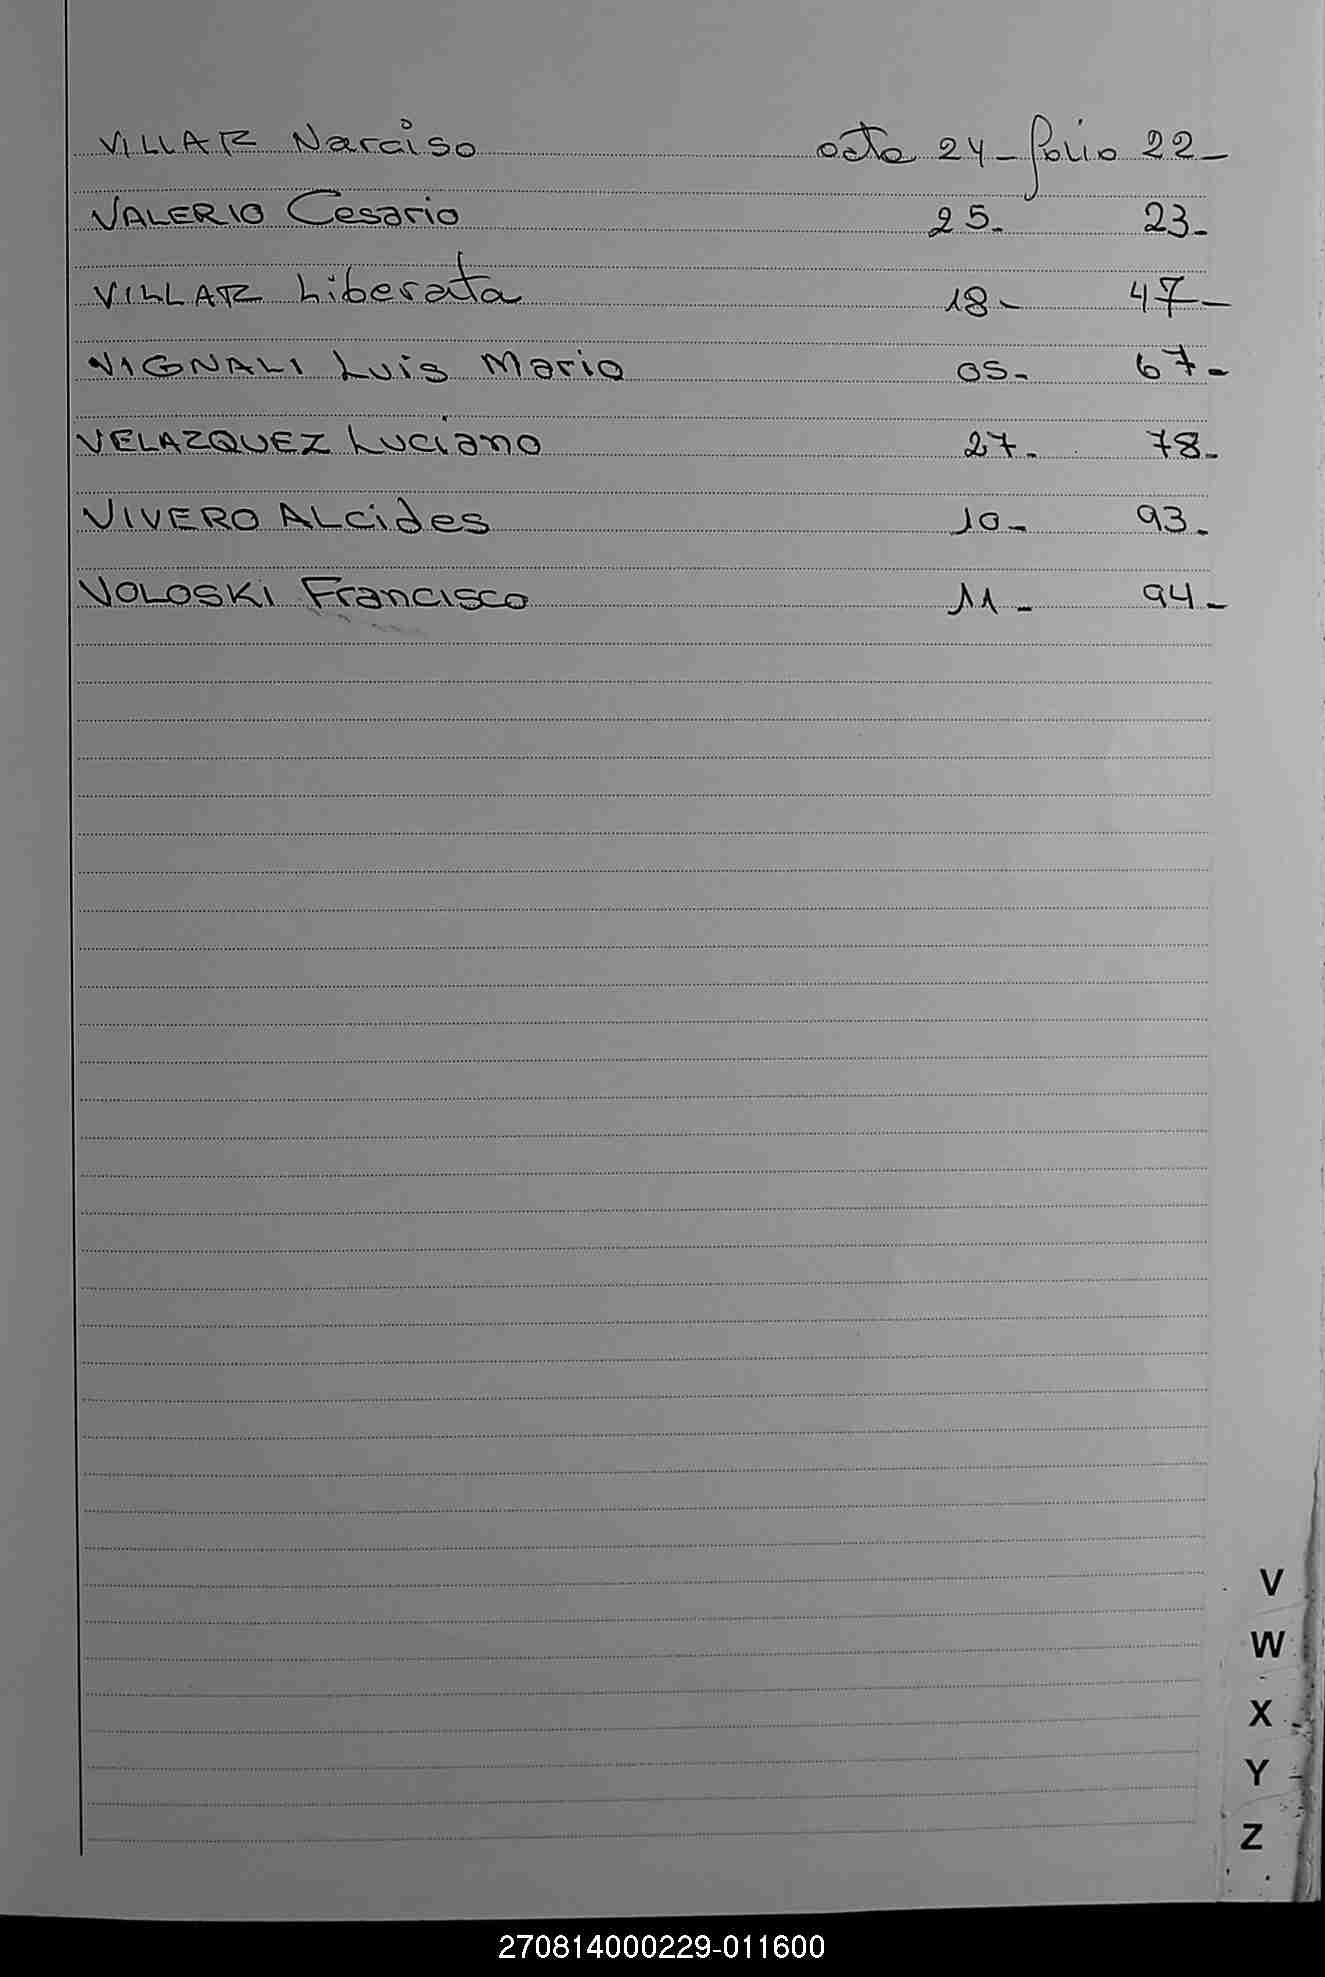 VILLAR Narciso acta 24- folio 22-
VALERIO Cesario 25- 23-
VILLAR Liberata 18- 47-
VIGNALI Luis Mario 05- 67-
VELAZQUEZ Luciano 27- 78-
VIVERO ALcides 10- 93-
VOLOSKI Francisco 11- 94-
V
W
X
Y
Z
270814000229-011600